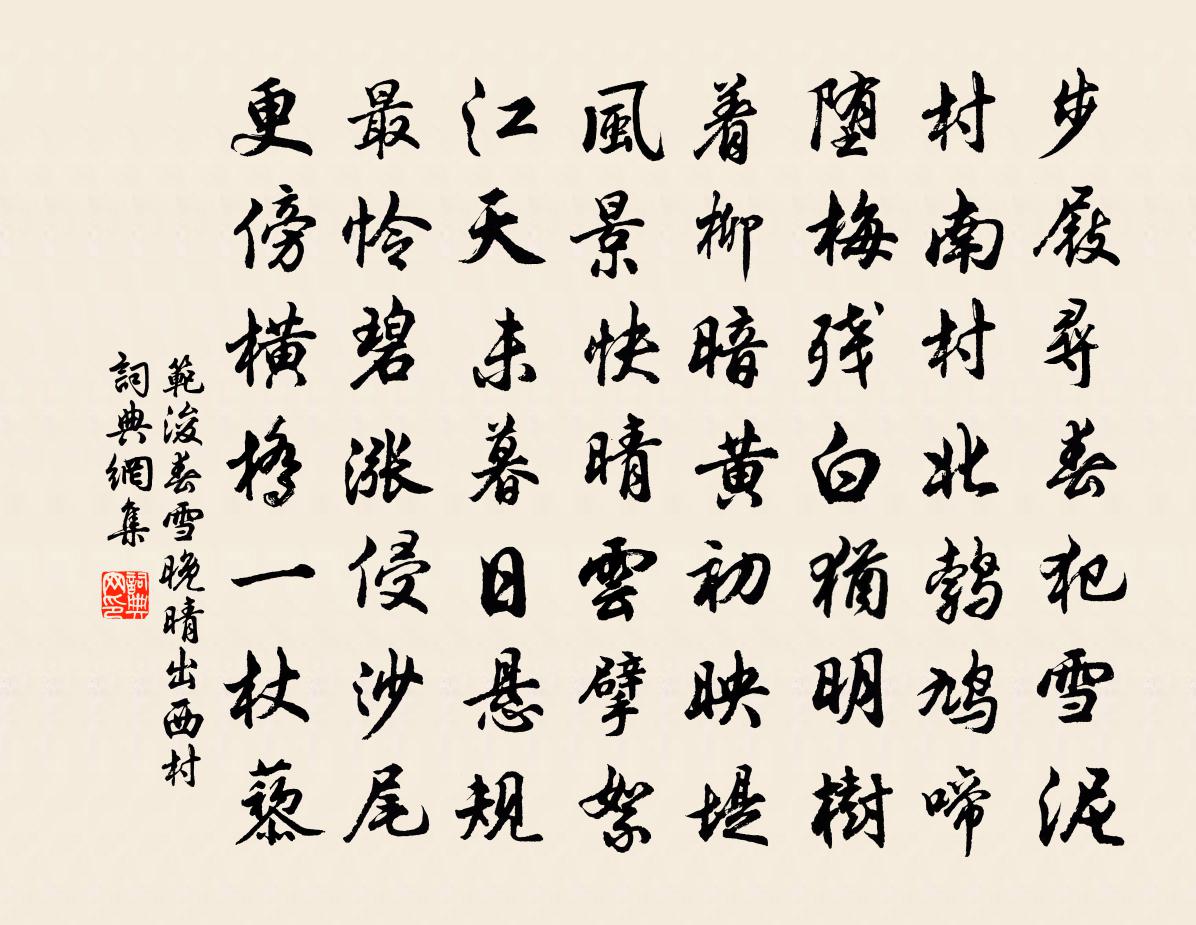 步屐尋春犯雪泥
村南村北鹁鳩啼
堕梅残白猶明樹
着柳暗黄初映堤
風景快晴雲擘絮
江天未暮日悬規
最怜碧漲侵沙尾
更傍橫橋一杖藜
範浚春雪晚晴出西村
詞典網集
詞典网印